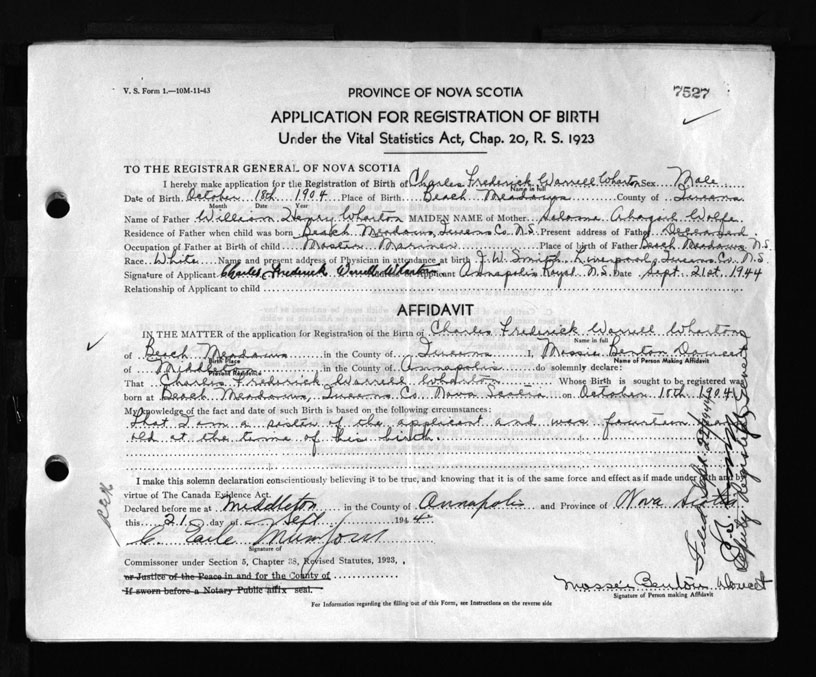 V. S. Form 1.—10M-11-43
PROVINCE OF NOVA SCOTIA
7527
APPLICATION FOR REGISTRATION OF BIRTH
Under the Vital Statistics Act, Chap. 20, R. S. 1923
TO THE REGISTRAR GENERAL OF NOVA SCOTIA
I hereby make application for the Registration of Birth of Charles Frederick Warrell Wharton Sex Male
Name in full
Date of Birth October 18th 1904 Place of Birth Beach Meadows County of Queens
Month Date Year
Name of Father William Henry Wharton MAIDEN NAME of Mother Wolfe
Residence of Father when child was born Beach Meadows, Queens Co. N.S. Present address of Father Deceased.
Occupation of Father at Birth of child Master Mariner Place of birth of Father Beach Meadows N.S.
Race White Name and present address of Physician in attendance at birth J. W. Smith, Liverpool, Queens Co. N.S.
Signature of Applicant Charles Frederick Warrell Wharton Address of Applicant Annapolis Royal N.S. Date Sept. 21st 1944
Relationship of Applicant to child
AFFIDAVIT
IN THE MATTER of the application for Registration of the Birth of Charles Frederick Warrell Wharton
Name in full
of Beach Meadows in the County of Queens I, Mossie Benton Doucet
Birth Place
Name of Person Making Affidavit
of Middleton in the County of Annapolis do solemnly declare:
Present Residence
That Charles Frederick Warrell Wharton Whose Birth is sought to be registered was
born at Beach Meadows, Queens Co. Nova Scotia on October 18th 1904
My knowledge of the fact and date of such Birth is based on the following circumstances:
That I am a sister of the applicant and was fourteen years
old at the time of his birth.
I make this solemn declaration conscientiously believing it to be true, and knowing that it is of the same force and effect as if made under oath and by
virtue of The Canada Evidence Act.
Declared before me at Middleton in the County of Annapolis and Province of Nova Scotia
this 21 day of Sept 1944
C. Earle Mumford
Signature of
Commissioner under Section 5, Chapter 38, Revised Statutes, 1923,
or Justice of the Peace in and for the County of
If sworn before a Notary Public affix seal.
Mossie Benton Doucet
Signature of Person making Affidavit
For Information regarding the filling out of this Form, see Instructions on the reverse side
Filed Sept. 22/1944
Deputy Registrar General